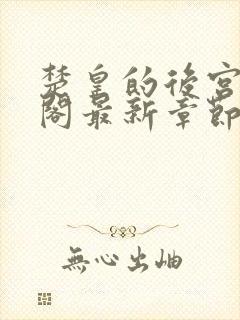 楚皇的後宮
閣最新章節
無心出岫